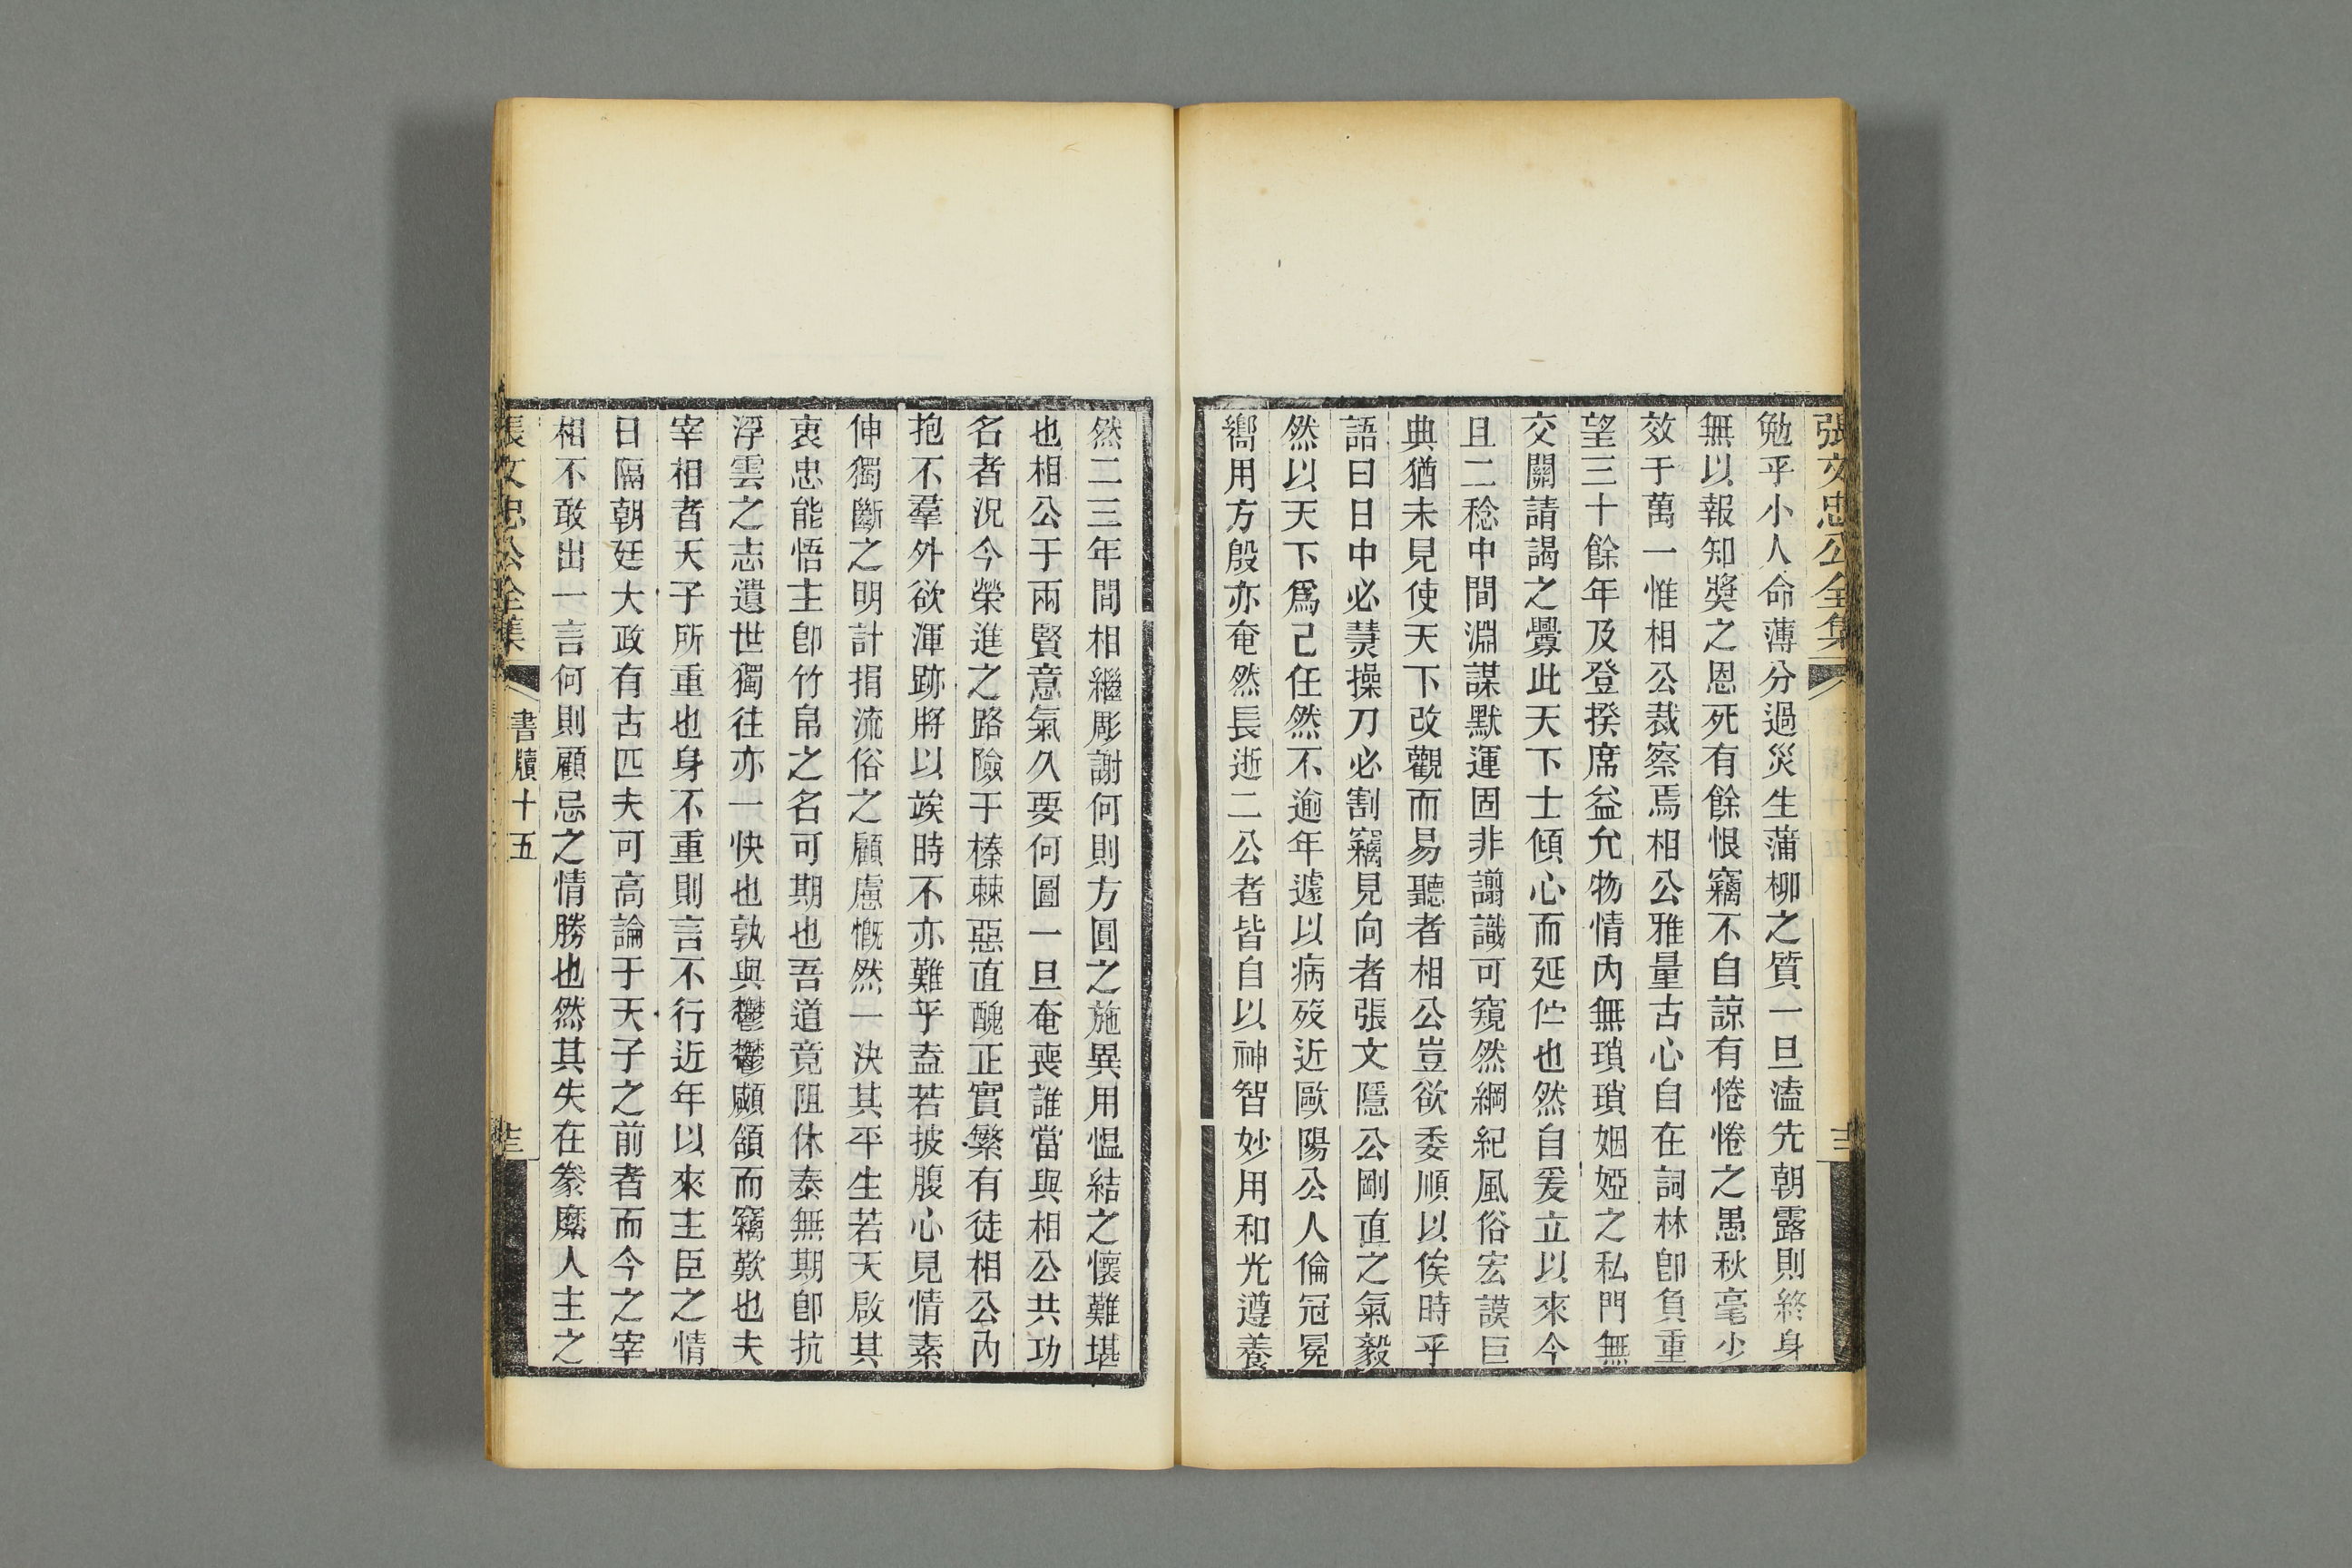 張文忠公全集
勉乎小人命薄分過災生蒲柳之質一旦溘先朝露則終身
無以報知獎之恩死有餘恨竊不自諒有惓惓之愚秋毫少
效于萬一惟相公裁察焉相公雅量古心自在詞林卽負重
望三十餘年及登揆席益允物情內無瑣瑣姻婭之私門無
交關請謁之釁此天下士傾心而延伫也然自爰立以來今
且二稔中間淵謀默運固非譾識可窺然綱紀風俗宏謨巨
典猶未見使天下改觀而易聽者相公豈欲委順以俟時乎
語曰日中必熭操刀必割竊見向者張文隱公剛直之氣毅
然以天下爲己任然不逾年遽以病歿近歐陽公人倫冠冕
嚮用方殷亦奄然長逝二公者皆自以神智妙用和光遵養
然二三年間相繼彫謝何則方圓之施異用慍結之懷難堪
也相公于兩賢意氣久要何圖一旦奄喪誰當與相公共功
名者況今榮進之路險于榛棘惡直醜正實繁有徒相公內
抱不羣外欲渾跡將以竢時不亦難乎盍若披腹心見情素
伸獨斷之明計捐流俗之顧慮慨然一決其平生若天啟其
衷忠能悟主卽竹帛之名可期也吾道竟阻休泰無期卽抗
浮雲之志遺世獨往亦一快也孰與鬱鬱顑頷而竊歎也夫
宰相者天子所重也身不重則言不行近年以來主臣之情
日隔朝廷大政有古匹夫可高論于天子之前者而今之宰
相不敢出一言何則顧忌之情勝也然其失在豢縻人主之
張文忠公全集
書牘十五